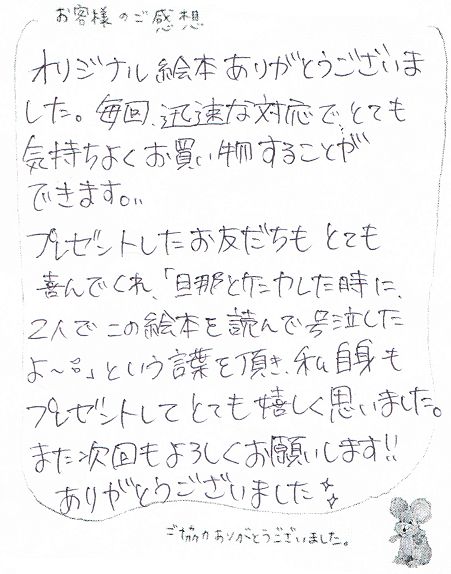 お客様のご感想
オリジナル絵本ありがとうございま
した。毎回、迅速な対応で、とても
気持ちよくお買い物することが
できます。
プレゼントしたお友だちも とても
喜んでくれ、「旦那とケンカした時に、
2人でこの絵本を読んで号泣した
よ〜」という言葉を頂き、私自身も
プレゼントしてとても嬉しく思いました。
また次回もよろしくお願いします!!
ありがとうございました
ご協力ありがとうございました。